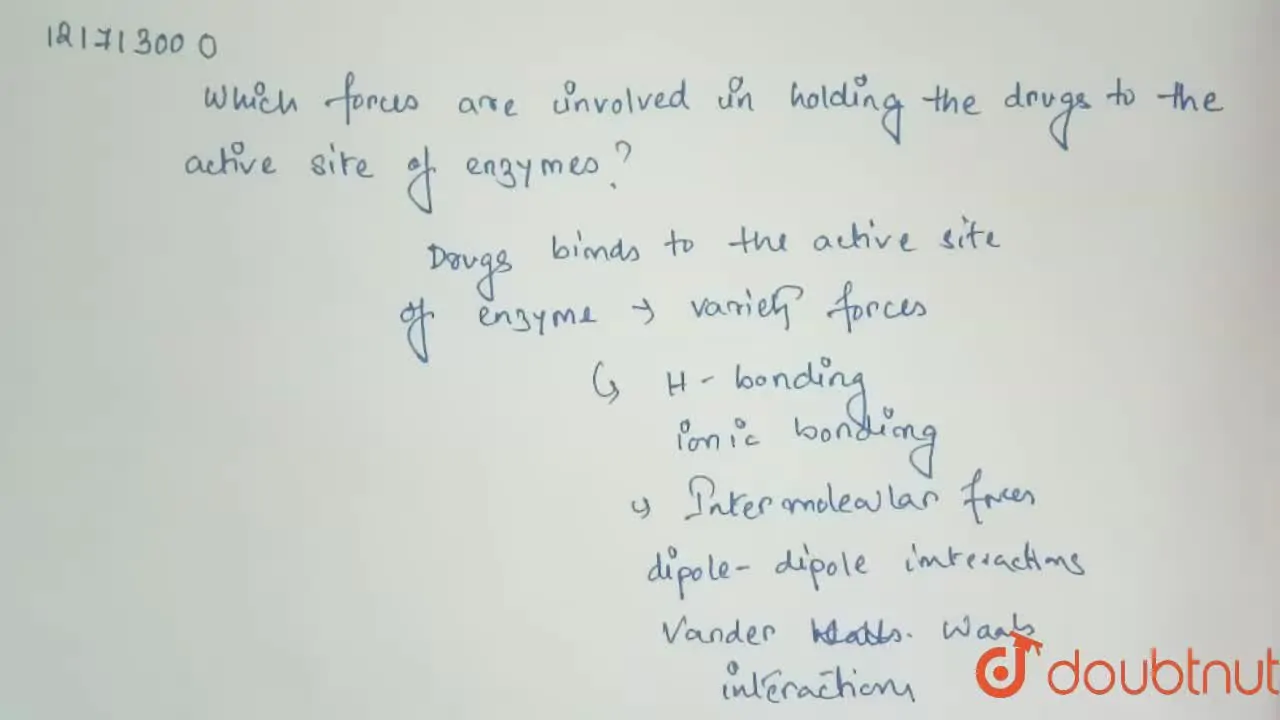 121713000
Which forces are involved in holding the drugs to the
active site of enzymes?
Drugs binds to the active site
of enzyme → variety forces
↳ H-bonding
ionic bonding
↳ Intermolecular forces
dipole-dipole interactions
Vander Waals
interactions
doubtnut